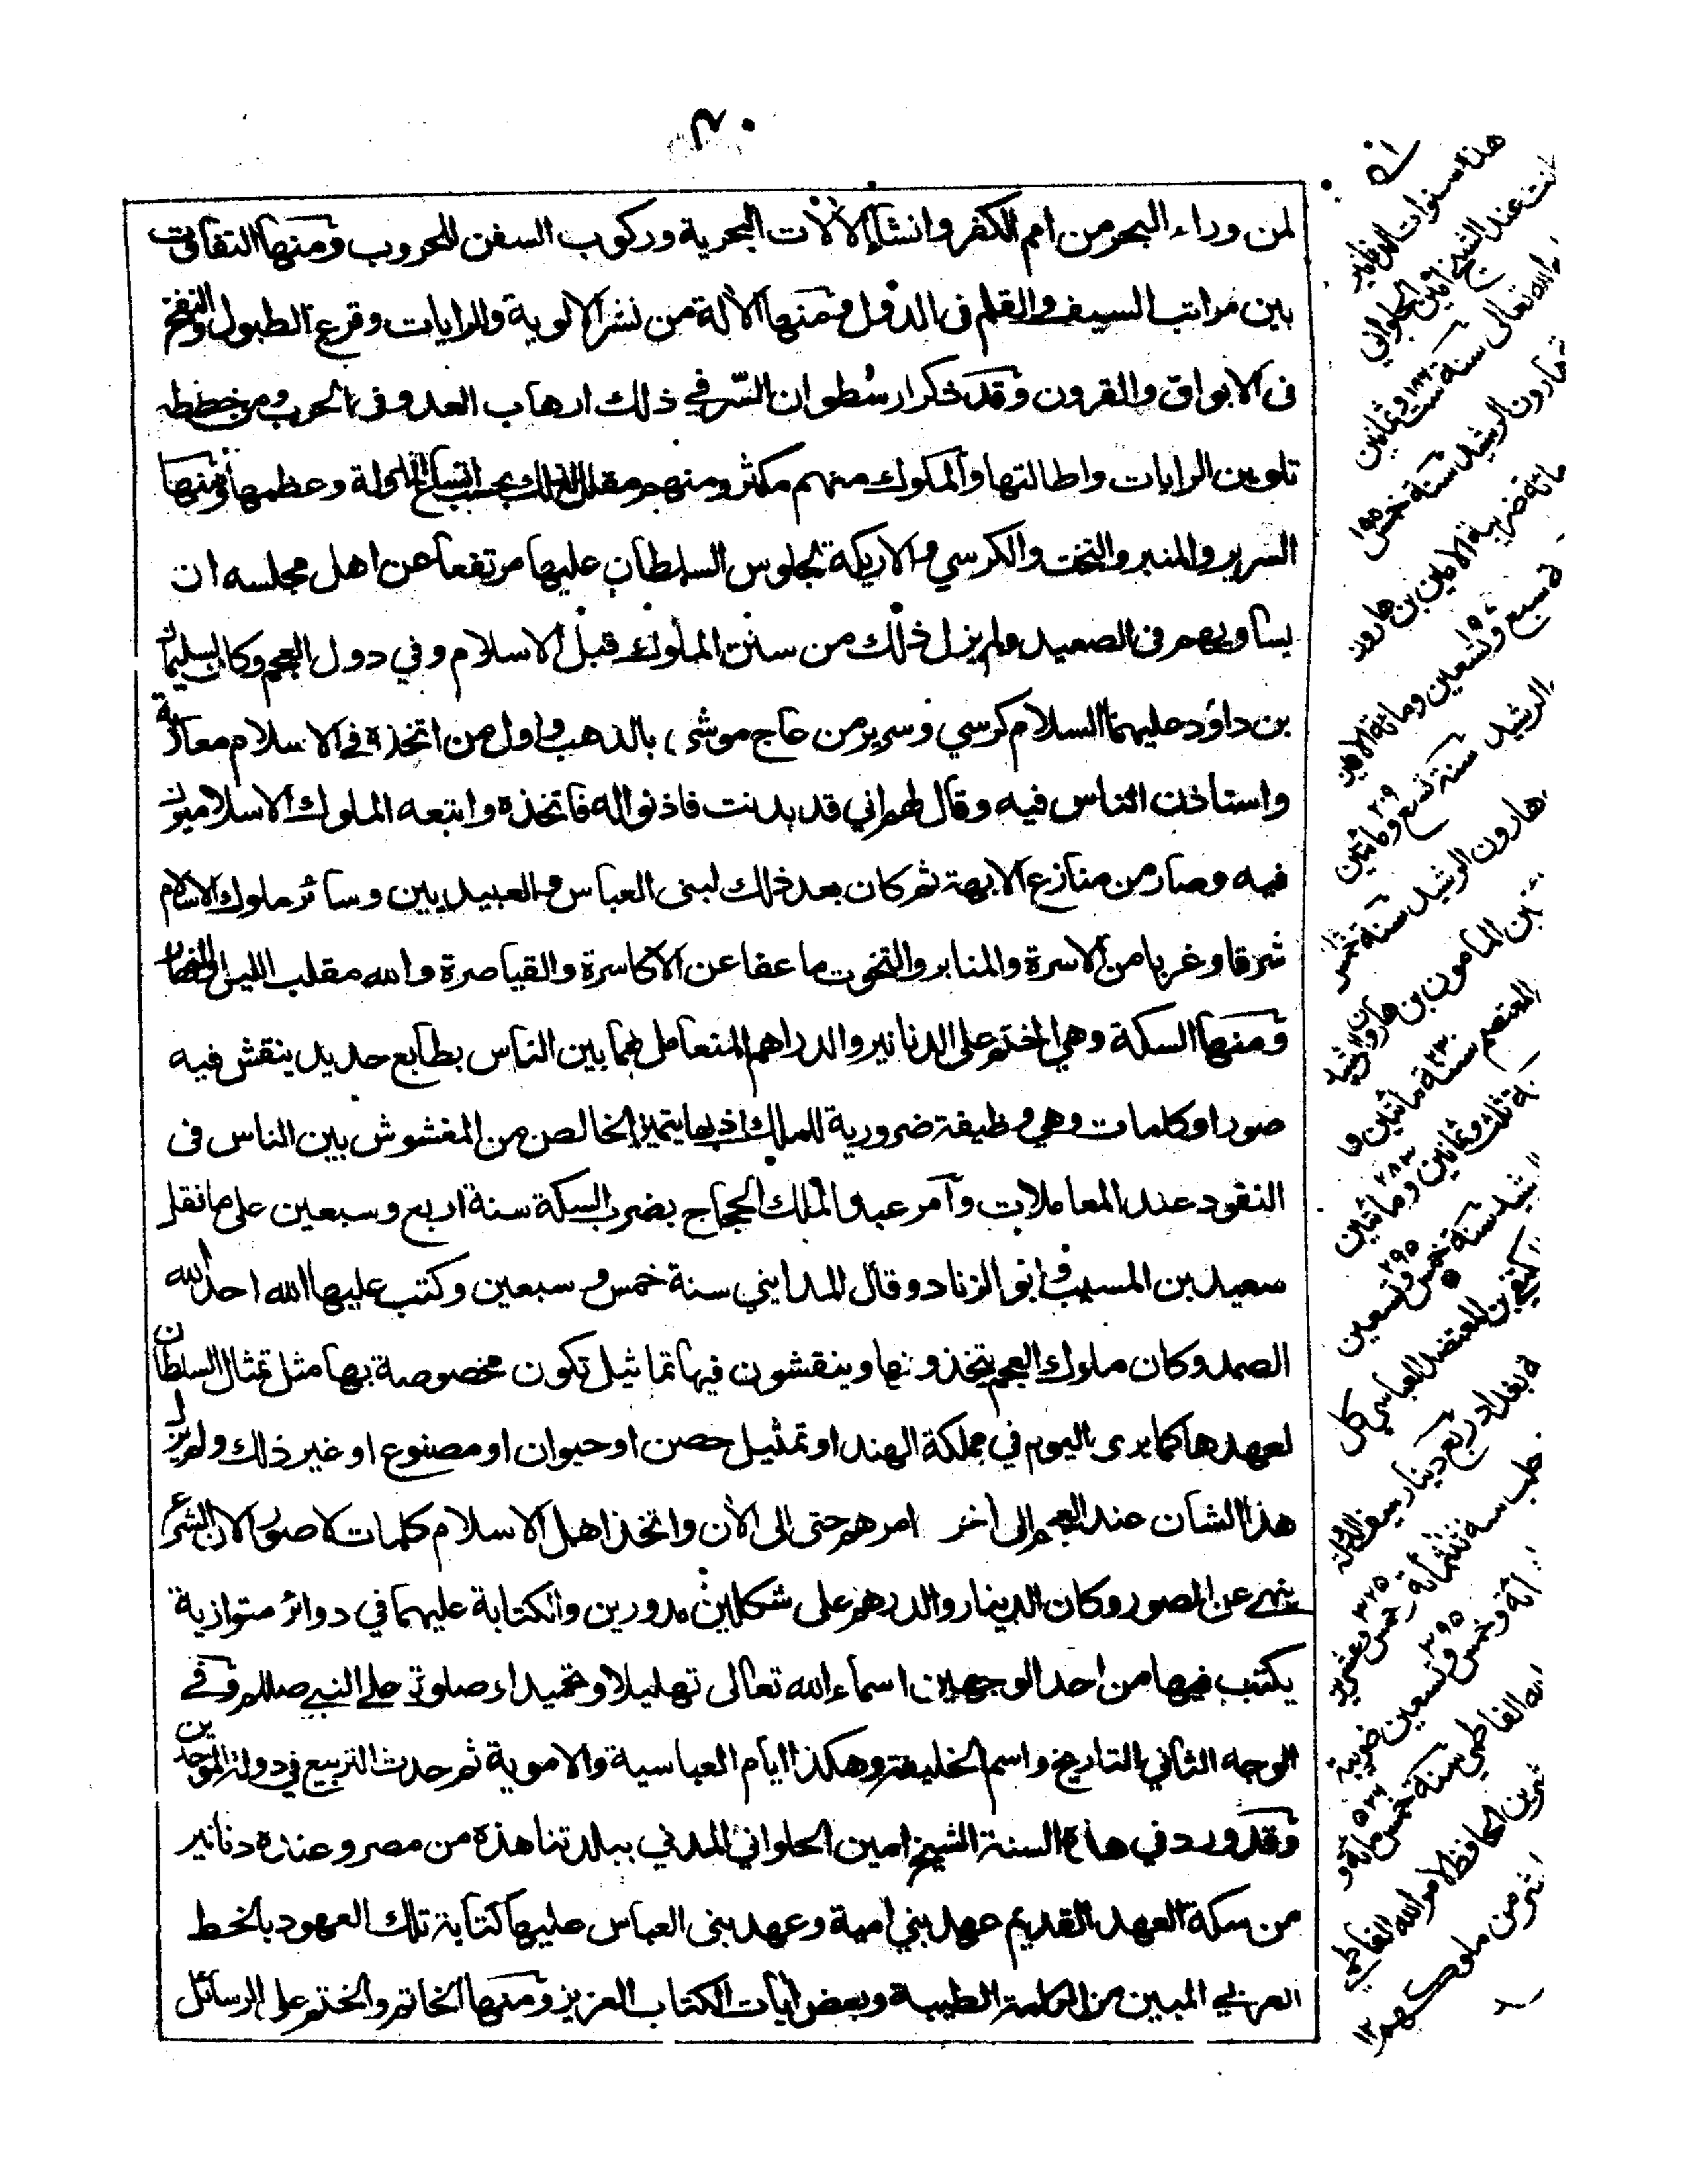 ٢٠
لمن وراء البحر من امم الكفر وانشاء الآلات البحرية وركوب السفن للحروب ومنها التفاوت
بين مراتب السيف والقلم فى الدول ومنها الآلة من نشر الالوية والرايات وقرع الطبول والنفخ
فى الابواق والقرون وقد ذكر ارسطو ان السّر في ذلك ارهاب العدو فى الحرب ومن خططه
تلوين الرايات واطالتها والملوك منهم مكثر ومنهم مقلل لذلك بحسب اتساع الدولة وعظمها ومنها
السرير والمنبر والتخت والكرسي والاريكة لجلوس السلطان عليها مرتفعا عن اهل مجلسه ان
يساويهم فى الصعيد ولم يزل ذلك من سنن الملوك قبل الاسلام وفي دول العجم وكان لسليمان
بن داؤد عليهما السلام كرسي وسرير من عاج موشى بالذهب واول من اتخذه في الاسلام معاوية
واستاذن الناس فيه وقال لهم اني قد بدنت فاذنوا له فاتخذه واتبعه الملوك الاسلاميون
فيه وصار من منازع الابهة ثم كان بعد ذلك لبنى العباس والعبيديين وسائر ملوك الاسلام
شرقا وغربا من الاسرة والمنابر والتخوت ما عفا عن الاكاسرة والقياصرة والله مقلب الليل والنهار
ومنها السكة وهي الختم على الدنانير والدراهم المتعامل بهما بين الناس بطابع حديد ينقش فيه
صور او كلمات وهي وظيفة ضرورية للملك اذ بها يتميز الخالص من المغشوش بين الناس فى
النقود عند المعاملات وآمر عبد الملك الحجاج بضرب السكة سنة اربع وسبعين على ما نقل
سعيد بن المسيب وابو الزناد وقال المدايني سنة خمس وسبعين وكتب عليها الله احد الله
الصمد وكان ملوك العجم يتخذونها وينقشون فيها تماثيل تكون مخصوصة بها مثل تمثال السلطان
لعهدها كما يرى اليوم في مملكة الهند او تمثيل حصن او حيوان او مصنوع او غير ذلك ولم يزل
هذا الشان عند العجم الى أخر امرهم حتى الى الآن واتخذ اهل الاسلام كلمات لا صورا لان الشرع
ينهى عن الصور وكان الدينار والدرهم على شكلين مدورين والكتابة عليهما في دوائر متوازية
يكتب فيها من احد الوجهين اسماء الله تعالى تهليلا وتحميدا وصلوة على النبي صللم وفي
الوجه الثاني التاريخ واسم الخليفة وهكذا ايام العباسية والاموية ثم حدث التربيع في دولة الموحدين
وقد ورد في هذه السنة الشيخ امين الحلواني المدني ببلدتنا هذه من مصر وعنده دنانير
من سكة العهد القديم عهد بني امية وعهد بنى العباس عليها كتابة تلك العهود بالخط
العربي المبين من الكلمة الطيبة وبعض ايات الكتاب العزيز ومنها الخاتم والختم على الرسائل
هذا سنوات الدنانير
عند الشيخ امين الحلواني
الله تعالى سنة ست وثمانين
هارون الرشيد سنة خمس
مائة ضربة الامين بن هارون
سبع وتسعين ومائة الامين
الرشيد سنة تسع ومائتين
هارون الرشيد سنة خمس
بن المامون بن هارون الرشيد
المعتصم سنة مائتين و
ثلث وثمانين ومائتين
سنة خمس وتسعين
المكتفي بن المعتضد العباسي كل
بغداد ربع دينار سيف الدولة
حلب سنة ثلثمائة خمس وعشرين
مائة وخمس وتسعين ضربة
الله الفاطمي سنة خمس مائة و
بن الحافظ لامر الله الفاطمي
من ملوكهم ١٢